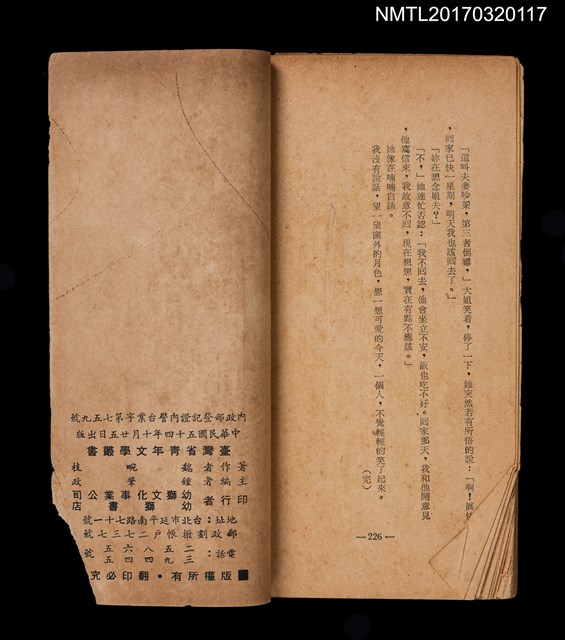 NMTL20170320117
「這叫夫妻吵架,第三者倒霉,」大姐笑着,停了一下,她突然若有所悟的說:「啊!
回家已快一星期,明天我也該回去了。」
「妳在想念姐夫?」
「不,」她連忙否認:「我不回去,他會坐立不安,飯也吃不好。回家那天,我和他鬧意見
,他寫信來,我故意不回,現在想想,實在有點不應該。」
她像在喃喃自語。
我沒有說話,望一望窗外的月色,想一想可愛的今天,一個人,不覺輕輕的笑了起來。
(完)
—226—
內政部登記證內警台業字第七五九號
中華民國五十四年十月廿五日出版
臺灣省青年文學叢書
著作者 魏畹枝
主編者 鍾肇政
印行者 幼獅文化事業公司
幼獅書店
地址:台北市延平南路七十一號
郵政劃撥帳戶二七三七號
電話:二五八六五號
三九四四五
■版權所有·翻印必究